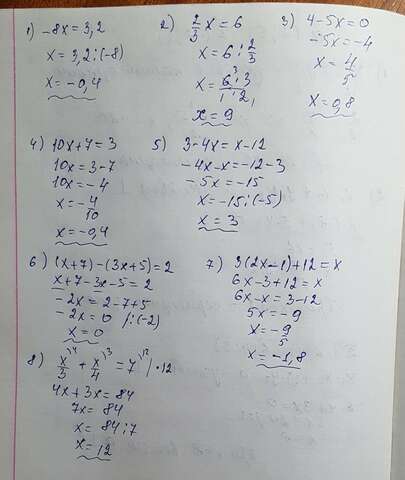 1) -8x = 3,2
x = 3,2 : (-8)
x = -0,4
2) 2/3 x = 6
x = 6 : 2/3
x = 6·3/1·2
x = 9
3) 4-5x=0
-5x=-4
x = 4/5
x = 0,8
4) 10x+7=3
10x=3-7
10x=-4
x=-4/10
x=-0,4
5) 3-4x=x-12
-4x-x=-12-3
-5x=-15
x=-15:(-5)
x=3
6) (x+7)-(3x+5)=2
x+7-3x-5=2
-2x=2-7+5
-2x=0 /:(-2)
x=0
7) 3(2x-1)+12=x
6x-3+12=x
6x-x=3-12
5x=-9
x=-9/5
x=-1,8
8) x/3 + x/4 = 7 | ·12
4x+3x=84
7x=84
x=84:7
x=12